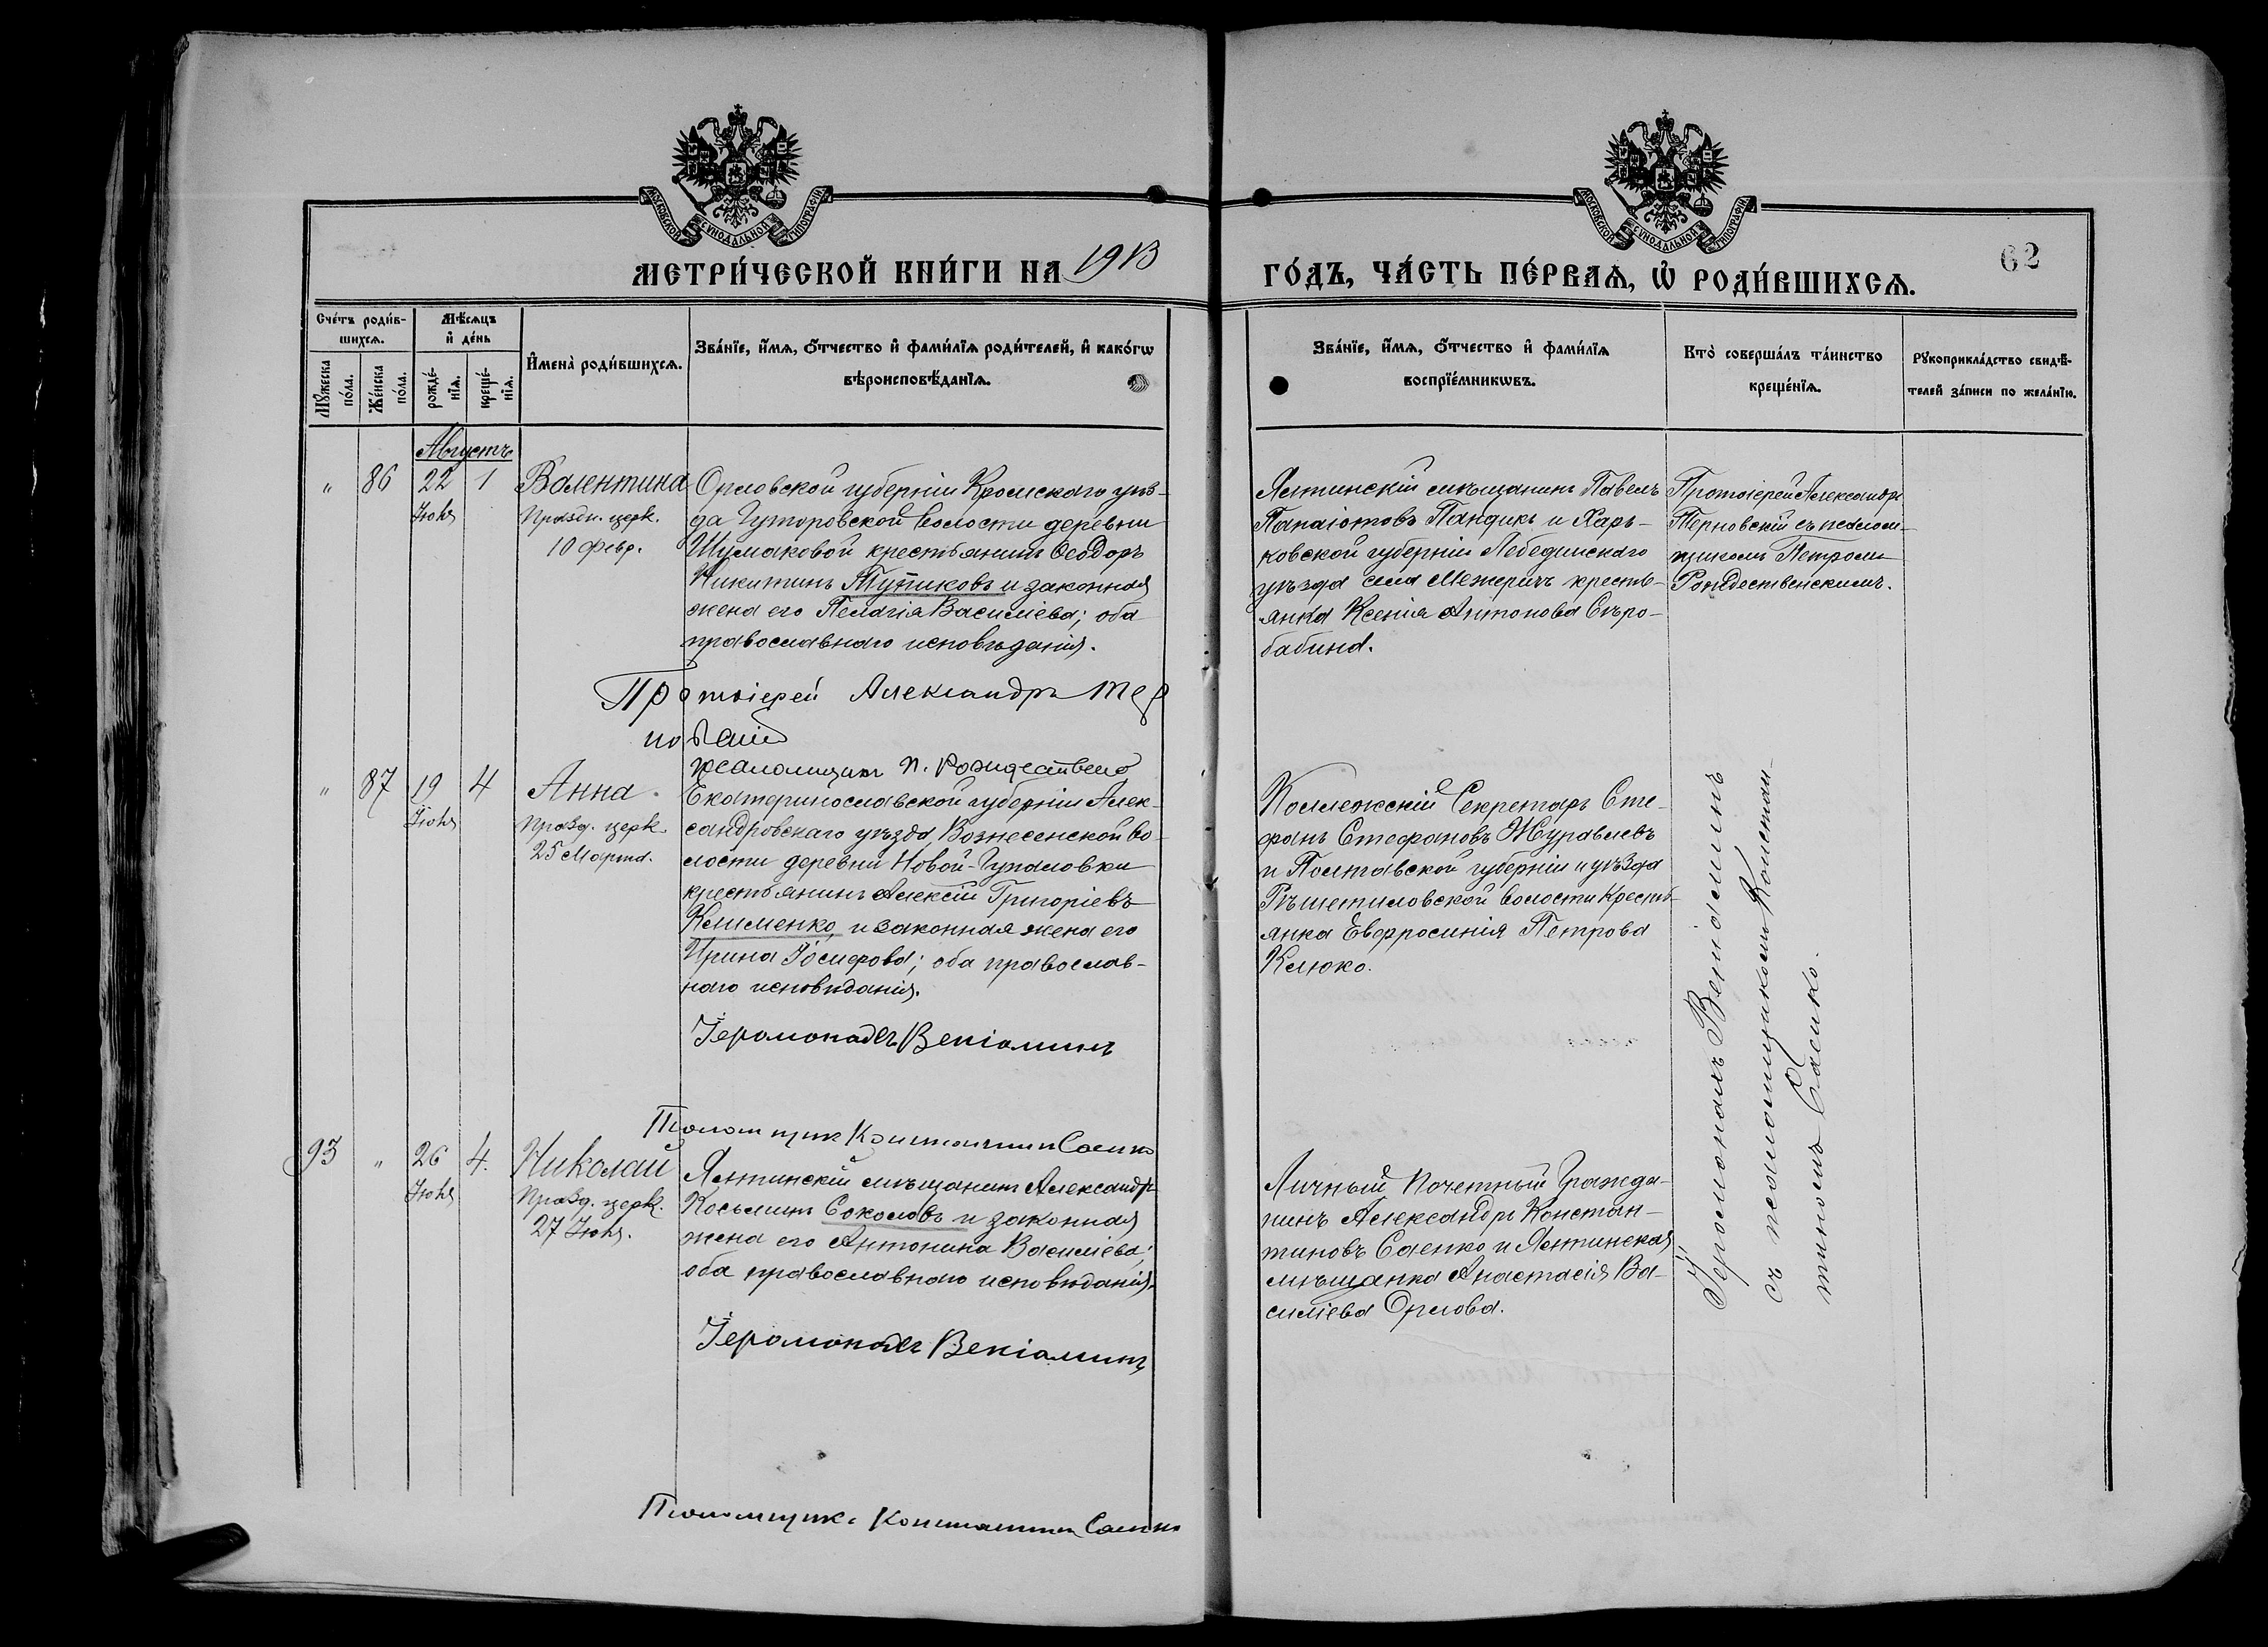 МОСКОВСКОЙ СѴНОДАЛЬНОЙ ТИПОГРАФІИ
МОСКОВСКОЙ СѴНОДАЛЬНОЙ ТИПОГРАФІИ
МЕТРИ́ЧЕСКОЙ КНИ́ГИ НА 1913
ГО́ДЪ, ЧА́СТЬ ПЕ́РВАѦ, Ѡ҆ РОДИ́ВШИХСѦ.
62
Сче́тъ роди́в-
шихсѧ.
Мѣ́сѧцъ
и҆ де́нь
Мꙋ́жеска
по́ла.
Же́нска
по́ла.
рожде́-
нїѧ.
креще́-
нїѧ.
И҆мена̀ роди́вшихсѧ.
Зва́нїе, и҆́мѧ, ѻ҆́тчество и҆ фами́лїѧ роди́телей, и҆ како́гѡ
вѣроисповѣ́данїѧ.
Зва́нїе, и҆́мѧ, ѻ҆́тчество и҆ фами́лїѧ
воспрїе́мникѡвъ.
Кто̀ соверша́лъ та́инство
креще́нїѧ.
Рꙋкоприкла́дство свидѣ́-
телей за́писи по жела́нїю.
Августъ
" 86 22 1
Іюля
Валентина
Праздн. церк.
10 февр.
Орловской губерніи Кромскаго уѣз-
да Гуторовской волости деревни
Шумаковой крестьянинъ Ѳеодоръ
Никитинъ Тупиковъ и законная
жена его Пелагія Василіева; оба
православнаго исповѣданія.
Ялтинскій мѣщанинъ Павелъ
Панаіотовъ Пандикъ и Харь-
ковской губерніи Лебединскаго
уѣзда села Межеричъ кресть-
янка Ксенія Антонова Скоро-
бабина.
Протоіерей Александръ
Терновскій съ псалом-
щикомъ Петромъ
Рождественскимъ.
Протоіерей Александръ Тер
новскій
псаломщикъ П. Рождественс
" 87 19 4
Іюля
Анна.
Празд. церк.
25 Марта.
Екатеринославской губерніи Алек-
сандровскаго уѣзда Вознесенской во-
лости деревни Новой-Гупаловки
крестьянинъ Алексій Григоріевъ
Клименко и законная жена его
Ирина Іосифова; оба православ-
наго исповѣданія.
Коллежскій Секретарь Сте-
фанъ Стефановъ Журавлевъ
и Полтавской губерніи и уѣзда
Рѣшетиловской волости кресть-
янка Евфросинія Петрова
Клюко.
Іеромонахъ Веніаминъ
Псаломщикъ Константинъ Саенко
Іеромонахъ Веніаминъ
съ псаломщикомъ Констан-
тиномъ Саенко.
93 " 26 4.
Іюля
Николай
Празд. церк.
27 Іюля.
Ялтинскій мѣщанинъ Александръ
Косьминъ Соколовъ и законная
жена его Антонина Василіева;
оба православнаго исповѣданія.
Личный Почетный Гражда-
нинъ Александръ Констан-
тиновъ Саенко и Ялтинская
мѣщанка Анастасія Ва-
силіева Орлова.
Іеромонахъ Веніаминъ
Псаломщикъ Константинъ Саенко